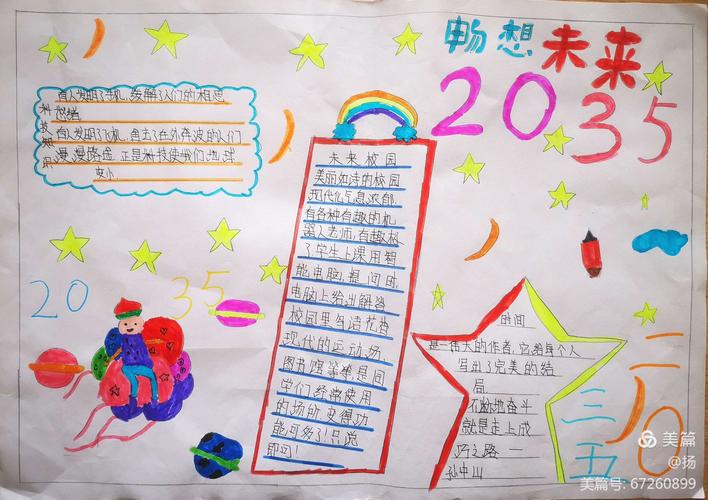 畅想未来
2035
有人发明了手机,缓解了人们的相思
愁绪
有人发明了飞机,免去了在外奔波的人们
漫漫路途 正是科技使我们地球
变小
科技知识
未来校园
美丽如诗的校园
现代化气息浓郁
有各种有趣的机
器人老师,有趣极
了学生上课用智
能电脑,提问时
电脑上给出解答
校园里鸟语花香
现代的运动场,
图书馆等等,是同
学们经常使用
的场所 变得功
能可多了!只说
即可!
20 35
时间
是一伟大的作者,它给每个人
写出了完美的结
局
不断地奋斗
就是走上成
功之路 一
孙中山
二〇
三五
美篇
@扬
美篇号: 67260899